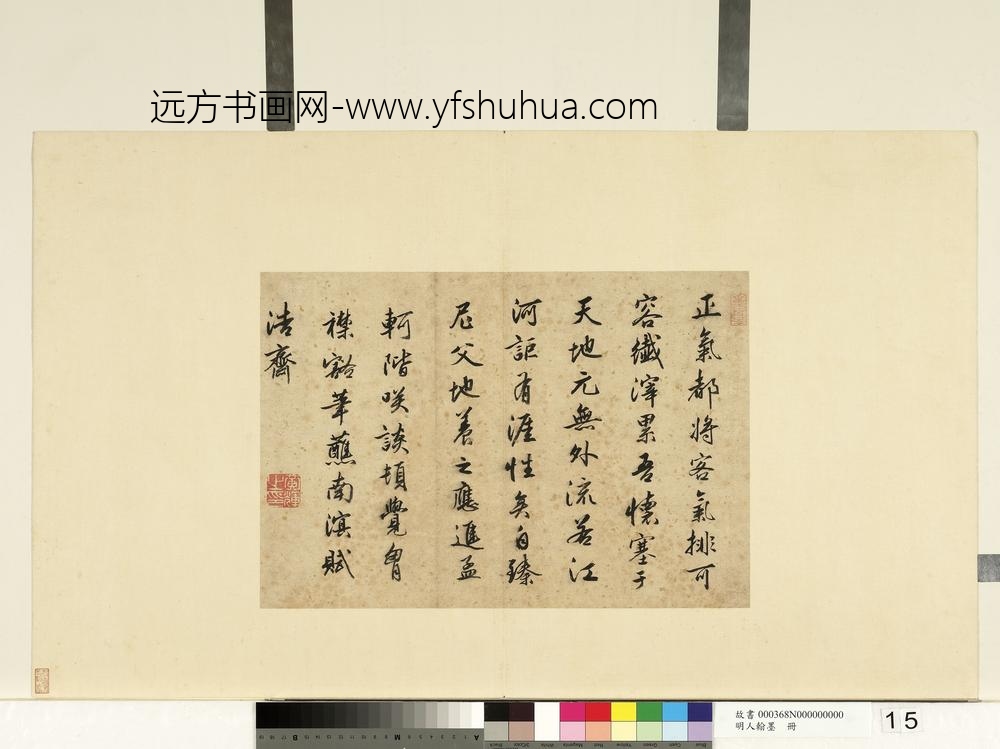 远方书画网-www.yfshuhua.com
正氣都將客氣排可
容纖滓累吾懷塞于
天地元無外流若江
河詎有涯性矣自臻
尼父地養之應進孟
軻階咲談頓覺胷
襟豁筆蘸南溟賦
浩齋
故書 000368N000000000
明人翰墨 冊
15